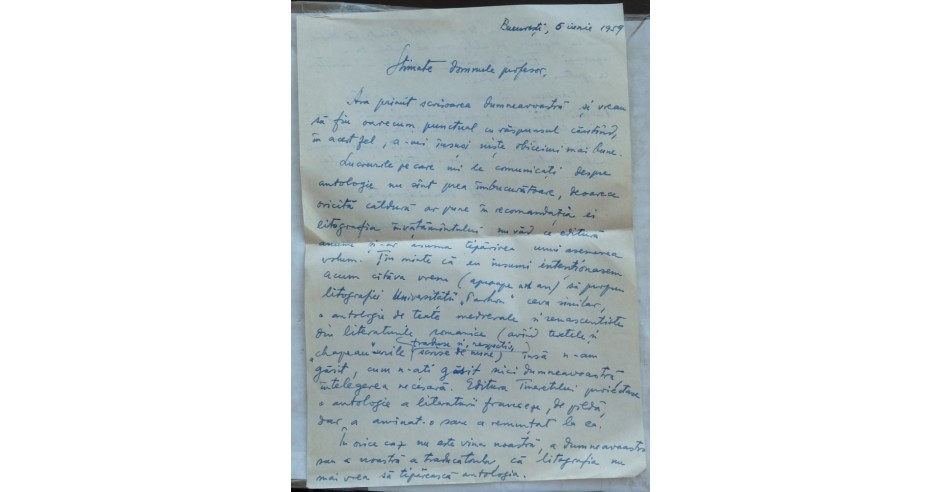 București, 5 iunie 1959
Stimate Domnule profesor,
Am primit scrisoarea Dumneavoastră și vreau
să fiu oarecum punctual cu răspunsul căutînd,
în acest fel, a-mi însuși niște obiceiuri mai bune.
Lucrurile pe care mi le comunicați despre
antologie nu sînt prea îmbucurătoare, deoarece
oricîtă căldură ar pune în recomandația ei
litografia învățămîntului nu văd ce editură
anume și-ar asuma tipărirea unui asemenea
volum. Țin minte că eu însumi intenționasem
acum cîtăva vreme (aproape un an) să propun
litografiei Universității "Parhon" ceva similar,
o antologie de texte medievale și renascentiste
din literaturile romanice (avînd textele și
(traduse și, respectiv,
"chapeau"urile scrise de mine) însă n-am
găsit, cum n-ați găsit nici dumneavoastră
înțelegerea necesară. Editura Tineretului proiectase
o antologie a literaturii franceze, de pildă,
dar a amînat-o sau a renunțat la ea.
În orice caz nu este vina noastră, a dumneavoastră
sau a noastră a traducătorilor, că litografia nu
mai vrea să tipărească antologia.